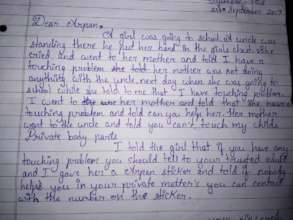 September 2009
Dear Arpan,
A girl was going to school. A uncle was
standing there he put her hand in the girls chest. She
cried and went to her mother and told I have a
touching problem she told her mother was not doing
anything with the uncle. next day when she was going to
school she told to me that I have touching problem.
I went to her mother and told that she have a
touching problem and told can you help her. Her mother
went to the uncle and told you can't touch my childs
Private body parts
I told the girl that if you have any
touching problem you should tell to your trusted adult
and I gave her a Arpan sticker and told if nobody
helps you in your private matter's you can contact
with the number on the sticker.